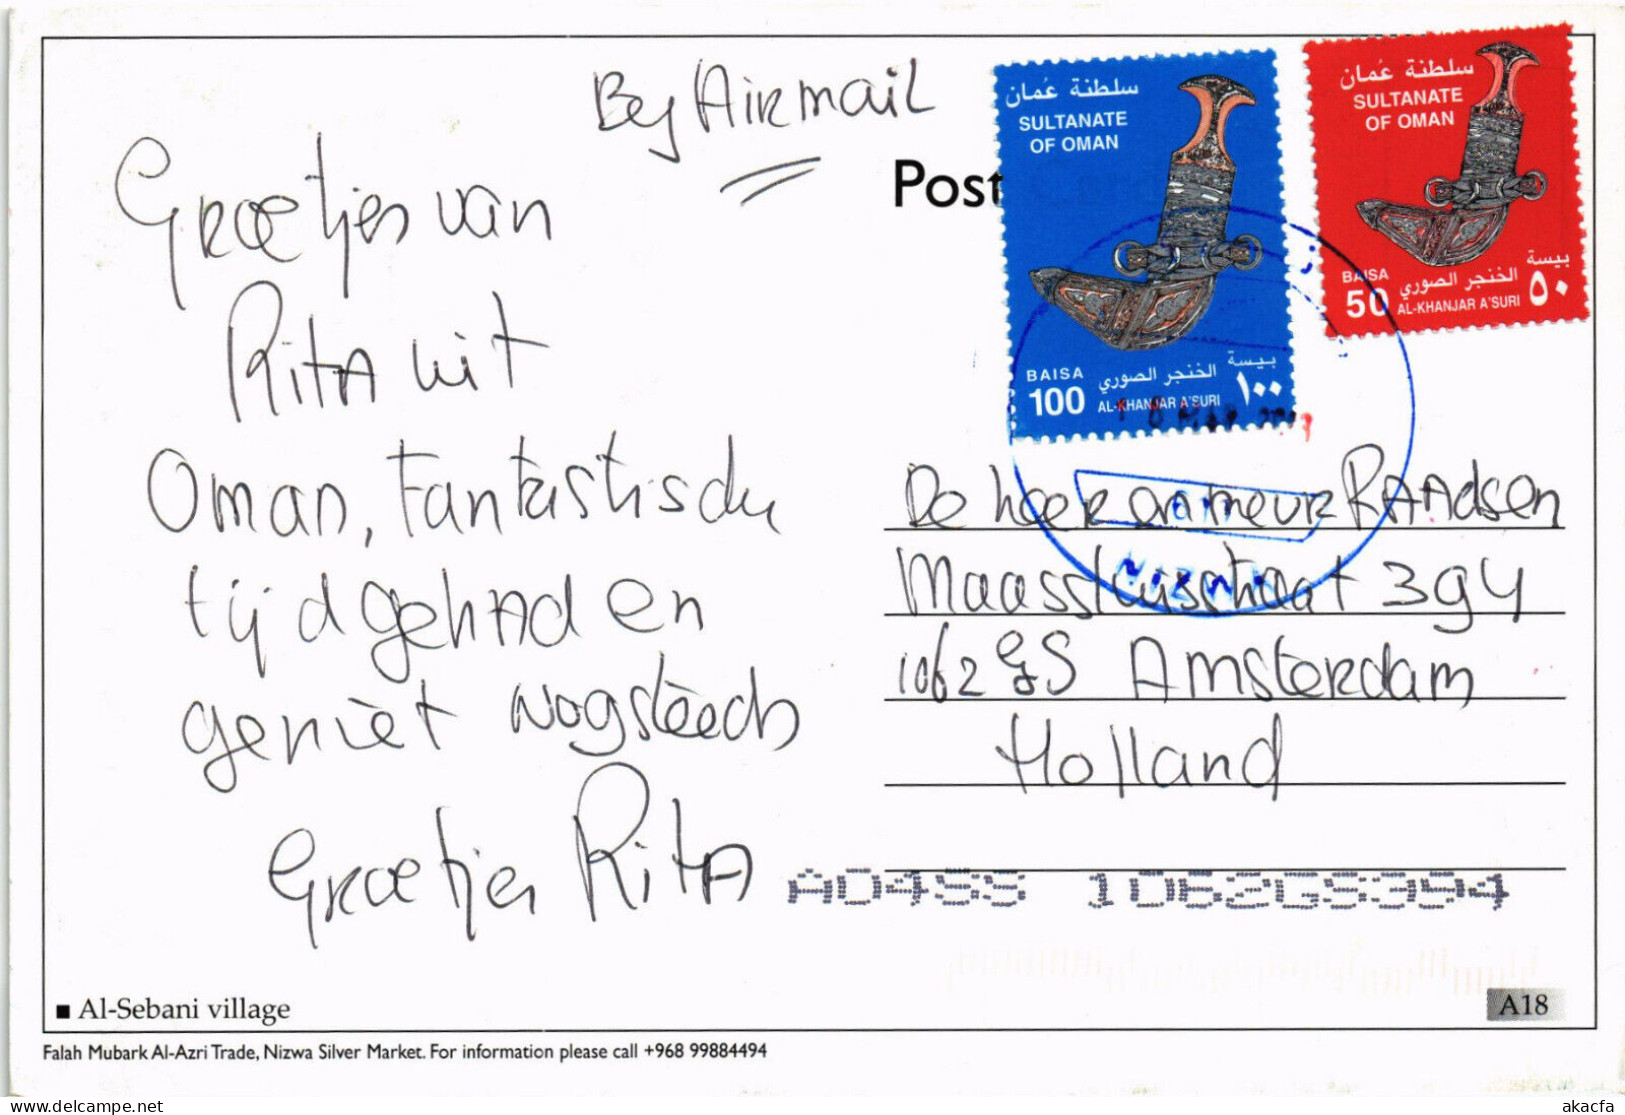 By Airmail
سلطنة عُمان
SULTANATE
OF OMAN
بيسة
BAISA
100 الخنجر الصوري ١٠٠
AL-KHANJAR A'SURI
سلطنة عُمان
SULTANATE
OF OMAN
بيسة
BAISA
50 الخنجر الصوري ٥٠
AL-KHANJAR A'SURI
Post
Groetjes van
Rita uit
Oman, Fantastische
tijd gehad en
geniet nog steeds
Groetjes Rita
De heer en meur RAAdsen
Maassluisstraat 394
1062 GS Amsterdam
Holland
NIZWA
AD4SS 1062GS394
■ Al-Sebani village
A18
Falah Mubark Al-Azri Trade, Nizwa Silver Market. For information please call +968 99884494
delcampe.net
akacfa